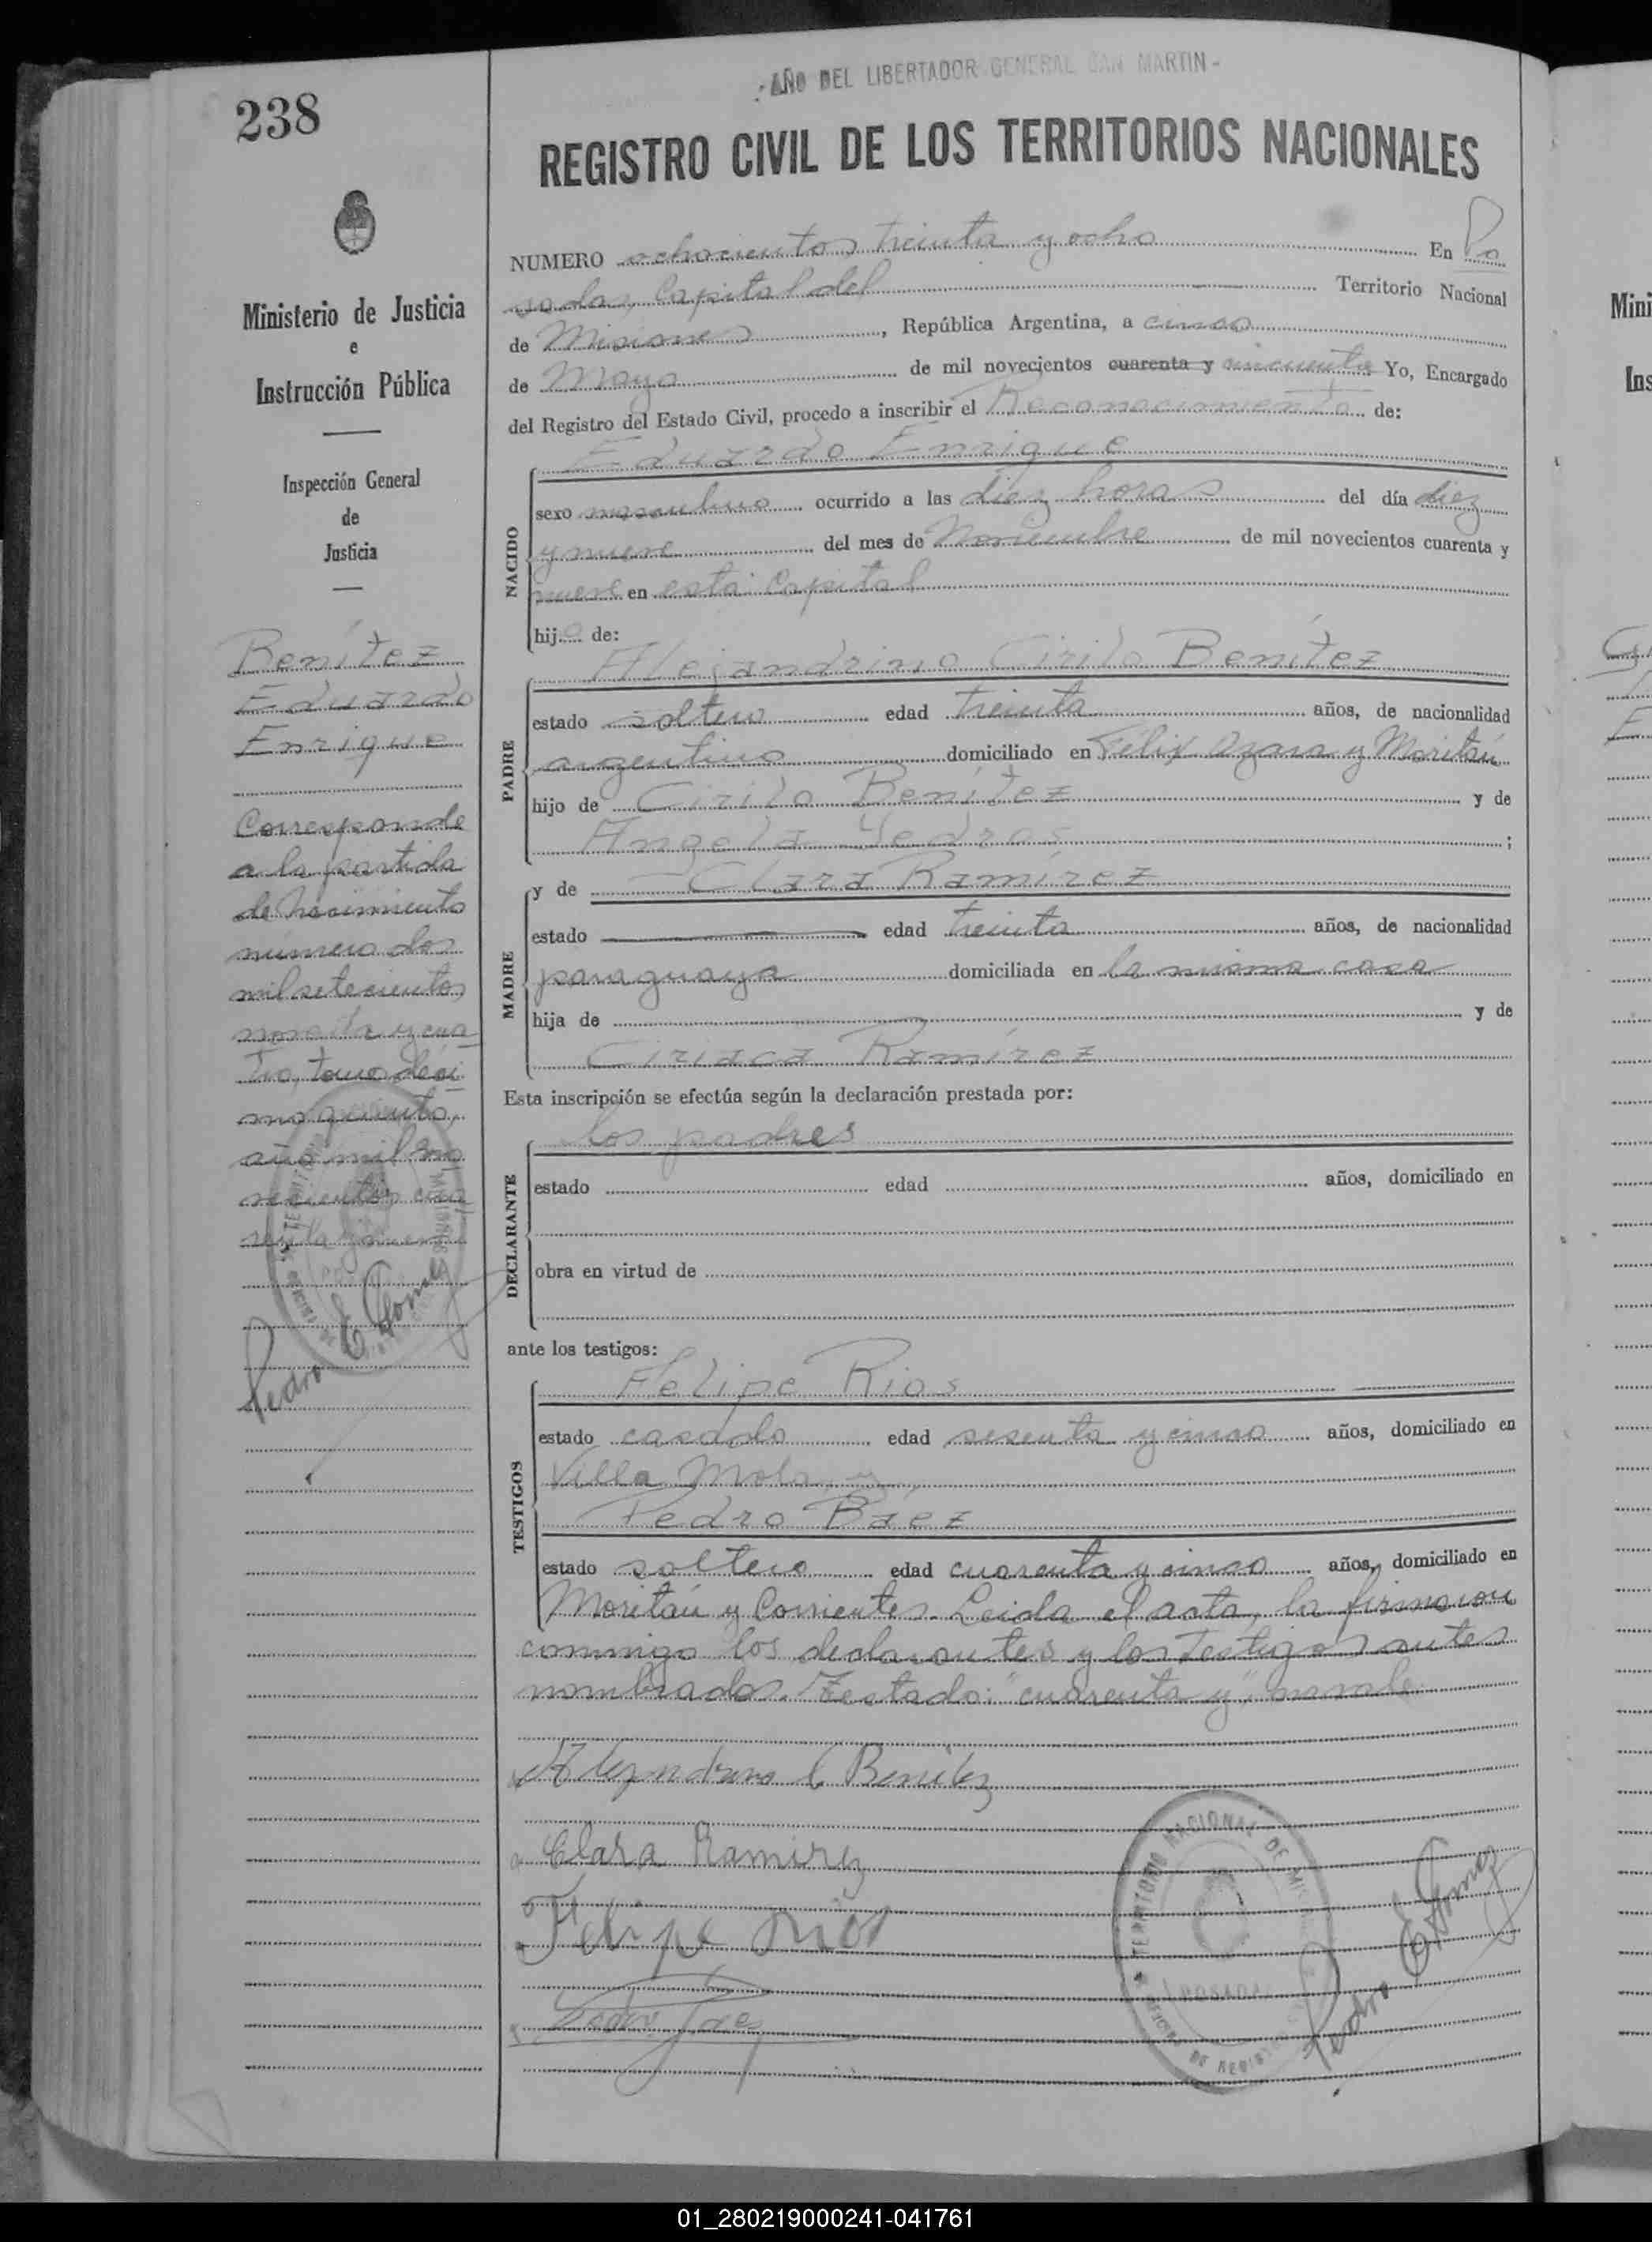 ·AÑO DEL LIBERTADOR GENERAL SAN MARTIN-
238
REGISTRO CIVIL DE LOS TERRITORIOS NACIONALES
NUMERO ochocientos treinta y ocho En Po
sadas, Capital del Territorio Nacional
de Misiones, República Argentina, a cinco
de Mayo de mil novecientos cuarenta y cincuenta Yo, Encargado
del Registro del Estado Civil, procedo a inscribir el Reconocimiento de:
NACIDO
Eduardo Enrique
sexo masculino ocurrido a las diez horas del día diez
y nueve del mes de Noviembre de mil novecientos cuarenta y
nueve en esta Capital
hijo de:
PADRE
Alejandrino Cirilo Benítez
estado soltero edad treinta años, de nacionalidad
argentino domiciliado en Félix Azara y Moritán
hijo de Cirilo Benítez y de
Angela Yedros;
MADRE
y de Clara Ramírez
estado edad treinta años, de nacionalidad
paraguaya domiciliada en la misma casa
hija de y de
Ciriaca Ramírez
Esta inscripción se efectúa según la declaración prestada por:
DECLARANTE
los padres
estado edad años, domiciliado en
obra en virtud de
ante los testigos:
TESTIGOS
Felipe Rios
estado casado edad sesenta y cinco años, domiciliado en
Villa Mola y
Pedro Báez
estado soltero edad cuarenta y cinco años, domiciliado en
Moritán y Corrientes. Leida el acta, la firmaron
conmigo los declarantes y los testigos antes
nombrados. Testado: "cuarenta y", no vale
Alejandrino C Benitez
Clara Ramirez
Felipe Rios
Pedro Báez
TERRITORIO NACIONAL DE MISIONES
POSADAS
Pedro E Gomez
Ministerio de Justicia
e
Instrucción Pública
Inspección General
de
Justicia
Benítez
Eduardo
Enrique
Corresponde
a la partida
de Nacimiento
número dos
mil setecientos
noventa y cua
tro, tomo déci
mo quinto,
año mil no
vecientos cua
renta y nueve
Pedro E Gomez
Mini
Ins
01_280219000241-041761